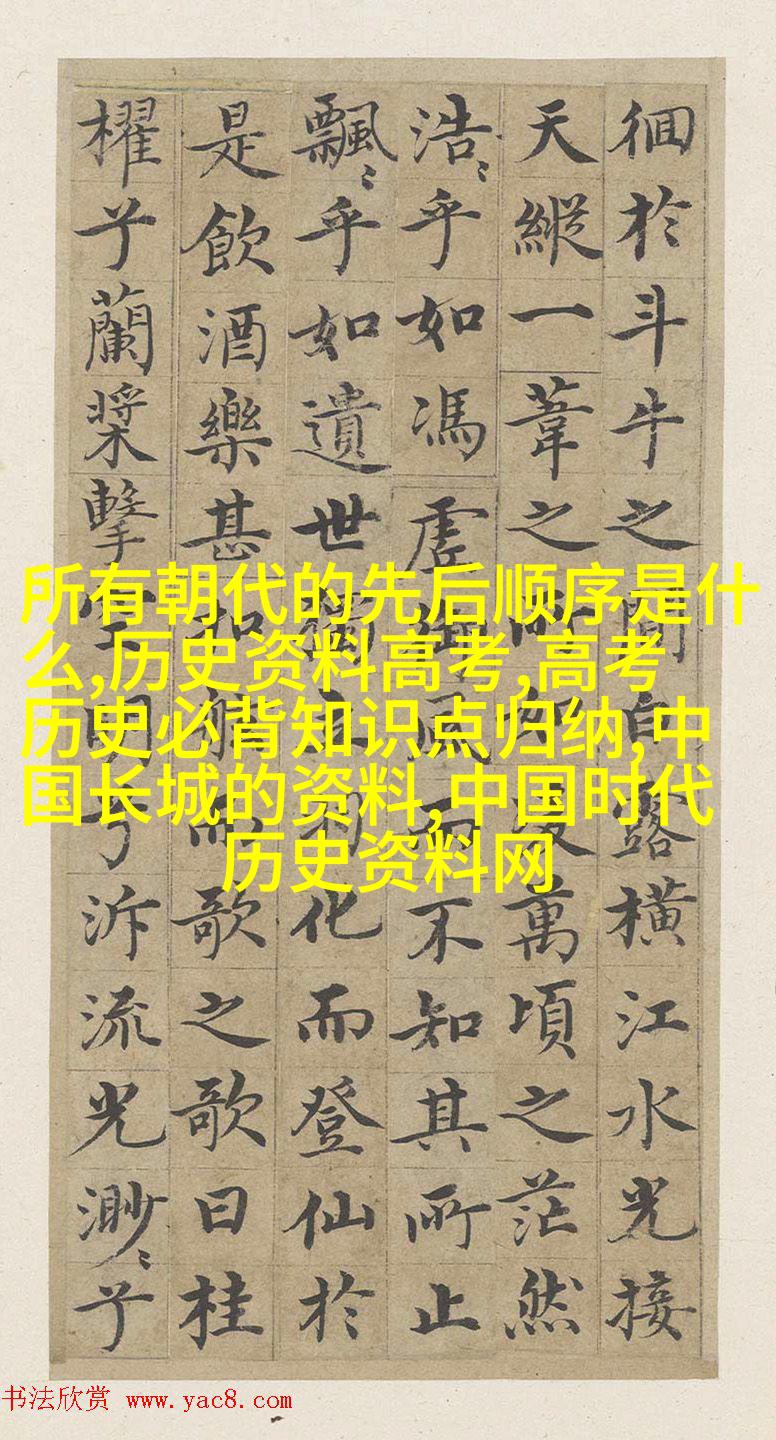 徊於斗牛之間白露橫江水光接
天縱一葦之所如凌萬頃之茫然
浩〻乎如馮虛御風而不知其所止
飄〻乎如遺世獨立羽化而登仙於
是飲酒樂甚扣舷而歌之歌曰桂
櫂兮蘭槳擊空明兮泝流光渺〻兮
所有朝代的先后顺序是什
么,历史资料高考,高考
历史必背知识点归纳,中
国长城的资料,中国时代
历史资料网
书法欣赏 www.yac8.com